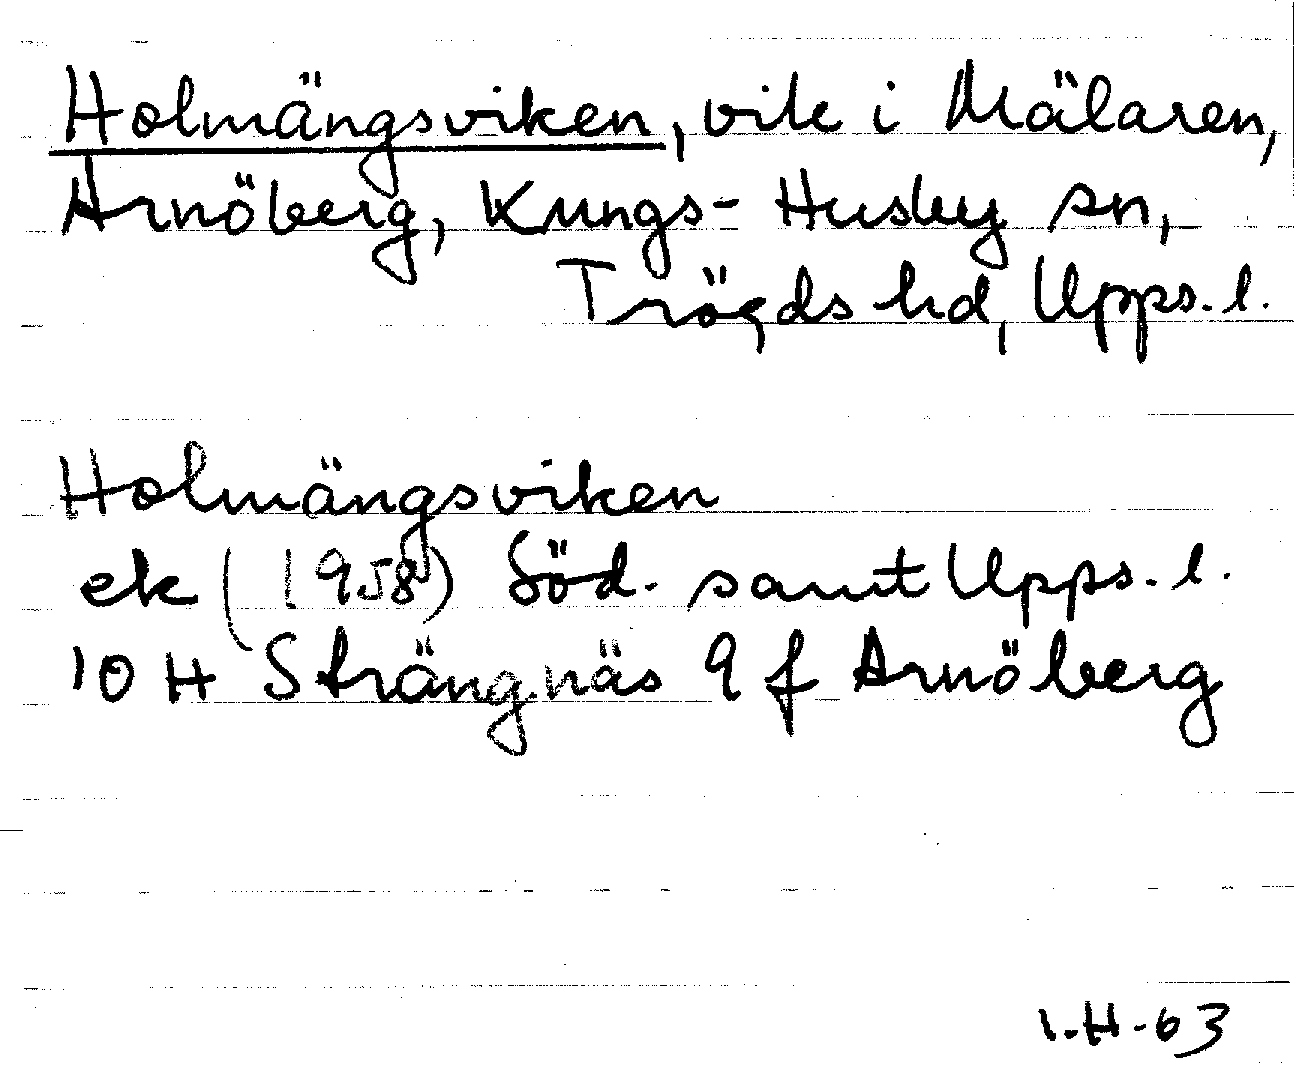 Holmängsviken, vik i Mälaren,
Arnöberg, Kungs-Husby sn,
Trögds hd, Upps. l.
Holmängsviken
ek (1958) Söd. samt Upps. l.
10 H Strängnäs 9 f Arnöberg
I.H-63